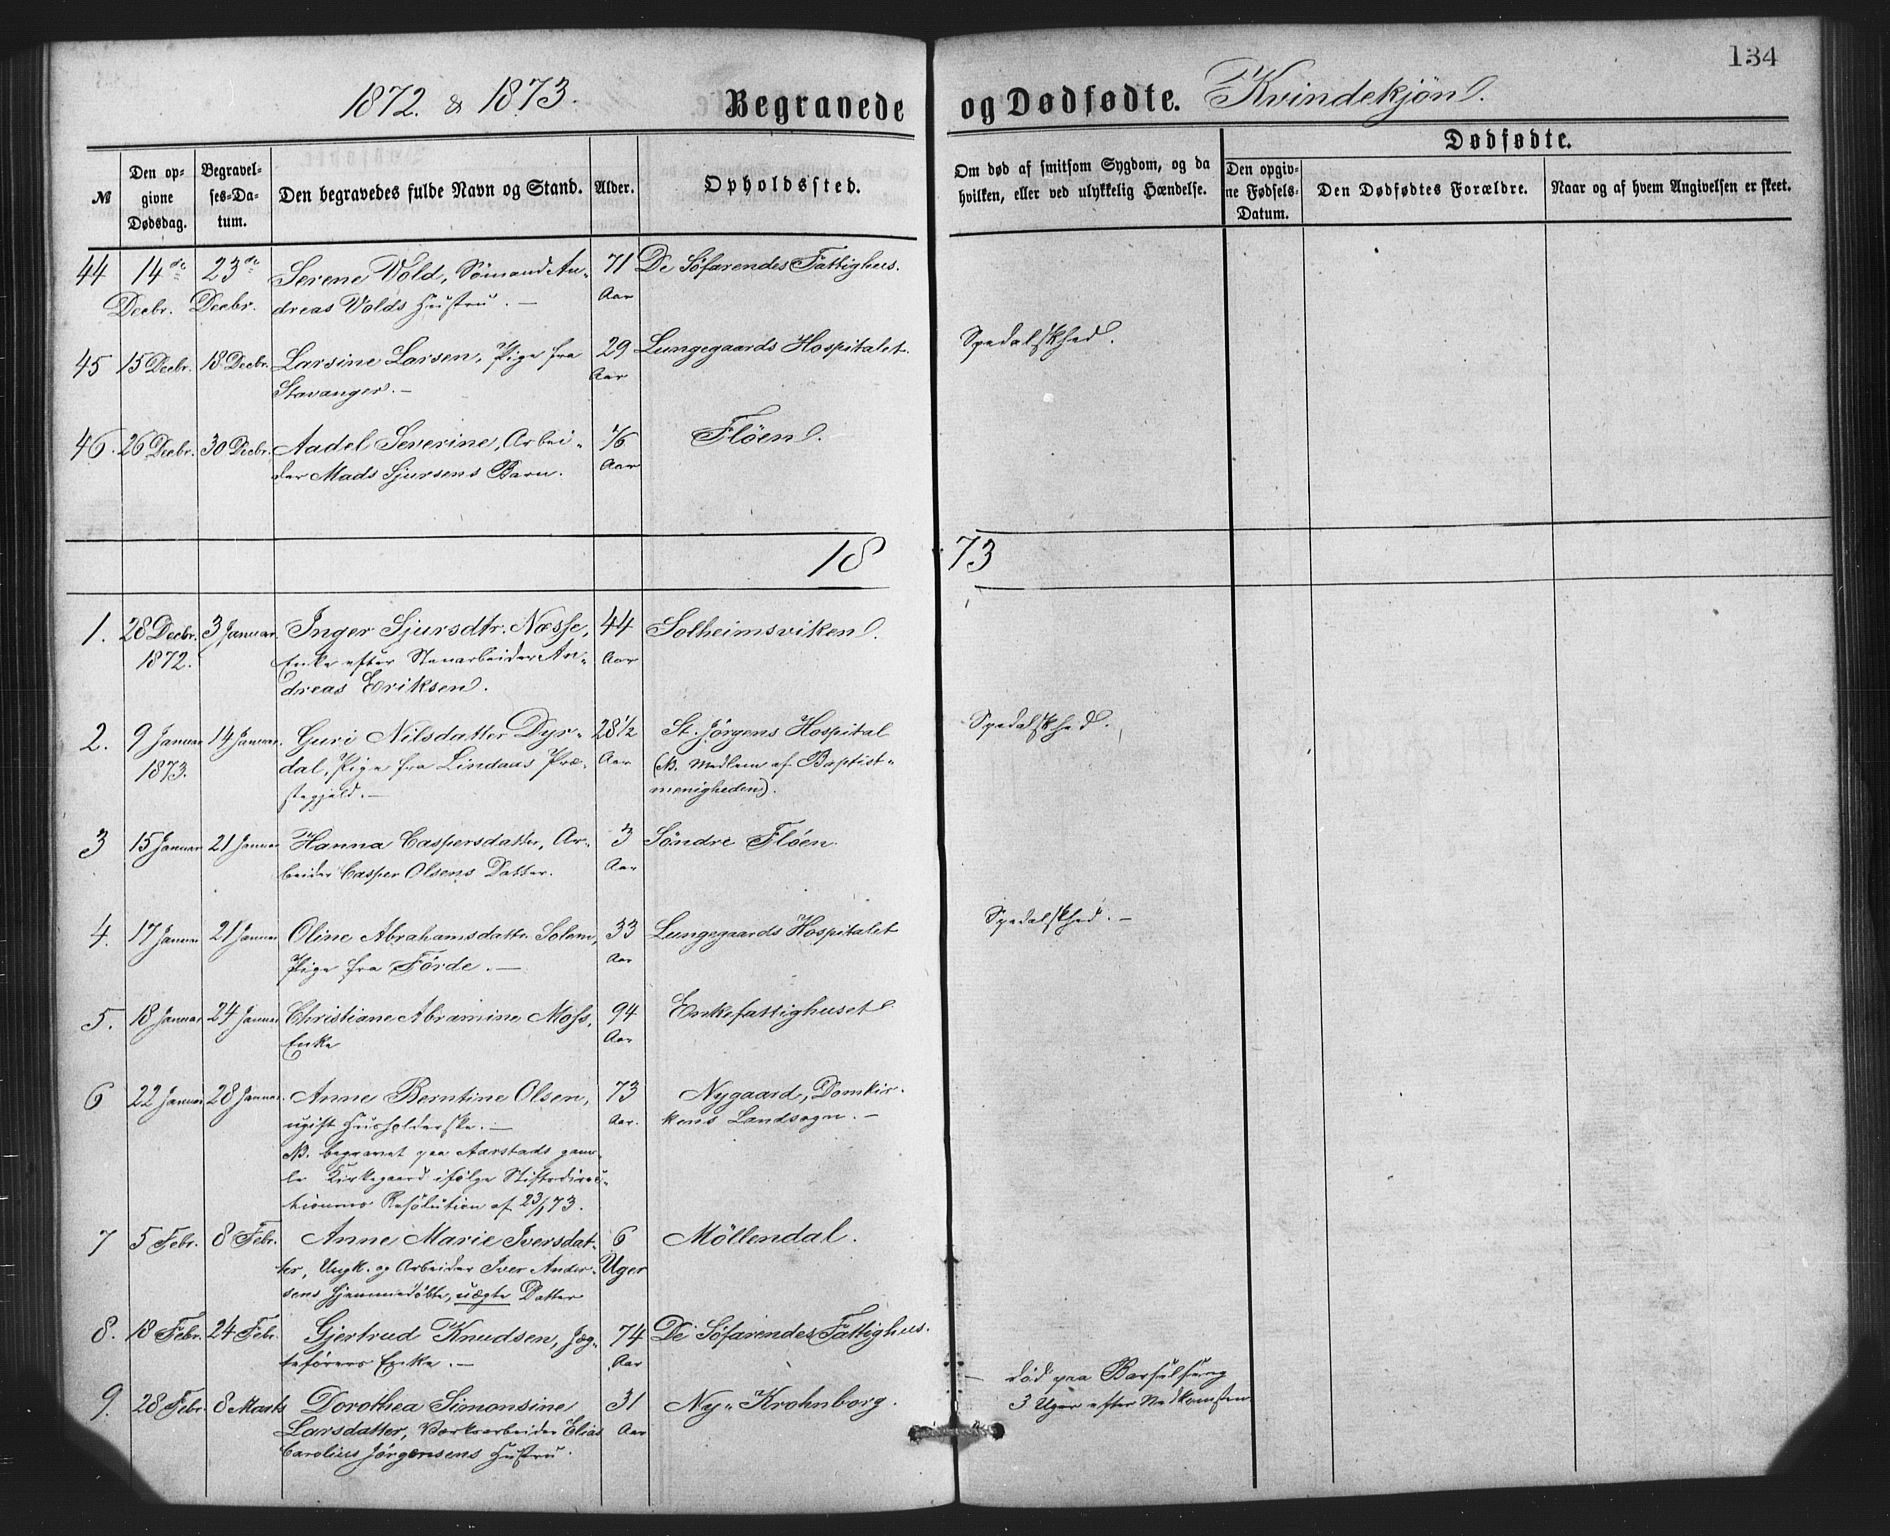 134
1872. & 1873. Begravede og Dødfødte. Kvindekjøn.
№
Den opgivne Dødsdag.
Begravelses-Datum.
Den begravedes fulde Navn og Stand.
Alder.
Opholdssted.
Om død af smitsom Sygdom, og da hvilken, eller ved ulykkelig Hændelse.
Dødfødte.
Den opgivne Fødsels-Datum.
Den Dødfødtes Forældre.
Naar og af hvem Angivelsen er skeet.
44 14de 23de Serene Vold, Sömand An- 71 De Söfarendes Fattighus.
Decbr. Decbr. dreas Volds Hustru. — Aar
45 15 Decbr. 18 Decbr. Larsine Larsen, Pige fra 29 Lungegaards Hospitalet. Spedalskhed.
Stavanger. — Aar
46. 26 Decbr. 30 Decbr. Aadel Severine, Arbei- 1/6 Flöen.
der Mads Sjursens Barn. Aar
1873
1. 28 Decbr. 3 Januar Inger Sjursdtr. Næsse, 44 Solheimsviken.
1872. Enke efter Stenarbeider An- Aar
dreas Eriksen.
2. 9 Januar 14 Januar. Guri Nilsdatter Dyr- 28 1/2 St. Jörgens Hospital Spedalskhed.
1873. dal, Pige fra Lindaas Præ- Aar (NB. Medlem af Baptist-
stegjeld. — menigheden).
3 15 Januar 21 Januar Hanna Caspersdatter, Ar- 3 Söndre Flöen.
beider Casper Olsens Datter. Aar
4. 17 Januar 21 Januar Oline Abrahamsdattr. Solem, 33 Lungegaards Hospitalet Spedalskhed. —
Pige fra Förde. — Aar
5. 18 Januar 24 Januar Christiane Abramine Moss, 94 Enkefattighuset
Enke Aar
6 22 Januar 28 Januar. Anne Berntine Olsen, 73 Nygaard, Domkir-
ugift Husholderske. — Aar. kens Landsogn. —
NB. begravet paa Aarstads gam-
le Kirkegaard ifölge Stiftsdirec-
tionens Resolution af 23/1 73.
7 5 Febr. 8 Febr. Anne Marie Iversdat- 6 Möllendal.
ter, Ungk. og Arbeider Iver Ander- Uger
sens hjemmedöbte, uægte Datter
8. 18 Febr. 24 Febr. Gjertrud Knudsen, Jæg- 74 De Söfarendes Fattighus.
teförers Enke. — Aar
9. 28 Febr. 8 Marts Dorothea Simonsine 31 Ny-Krohnborg. död paa Barselseng
Larsdatter, Værksarbeider Elias Aar 3 Uger efter Nedkomsten
Carolius Jörgensens Hustru.